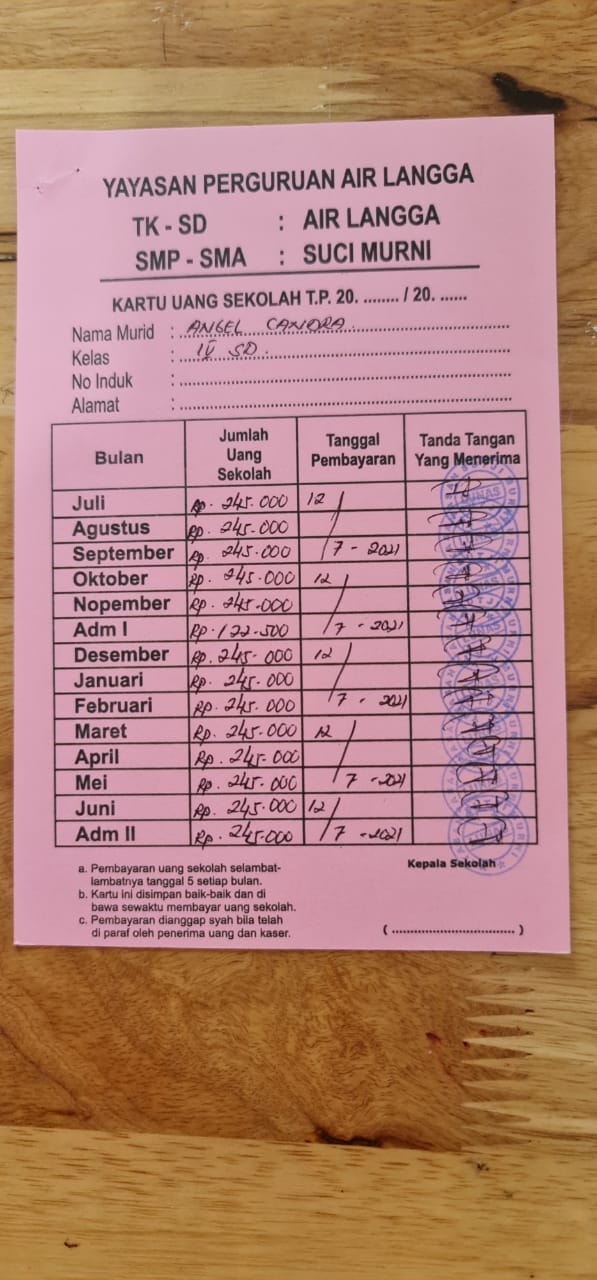 YAYASAN PERGURUAN AIR LANGGA
TK - SD : AIR LANGGA
SMP - SMA : SUCI MURNI
KARTU UANG SEKOLAH T.P. 20. ........ / 20. ......
Nama Murid : ANGEL CANDRA
Kelas : IV SD
No Induk :
Alamat :
Bulan Jumlah Uang Sekolah Tanggal Pembayaran Tanda Tangan Yang Menerima
Juli Rp. 245.000 12 /
Agustus Rp. 245.000
September Rp. 245.000 / 7 - 2021
Oktober Rp. 245.000 12 /
Nopember Rp. 245.000
Adm I Rp. 122.500 / 7 - 2021
Desember Rp. 245.000 12 /
Januari Rp. 245.000
Februari Rp. 245.000 7 - 2021
Maret Rp. 245.000 12 /
April Rp. 245.000
Mei Rp. 245.000 / 7 - 2021
Juni Rp. 245.000 12 /
Adm II Rp. 245.000 / 7 - 2021
LUNAS
a. Pembayaran uang sekolah selambat-
lambatnya tanggal 5 setiap bulan.
b. Kartu ini disimpan baik-baik dan di
bawa sewaktu membayar uang sekolah.
c. Pembayaran dianggap syah bila telah
di paraf oleh penerima uang dan kaser.
Kepala Sekolah
( .................................. )